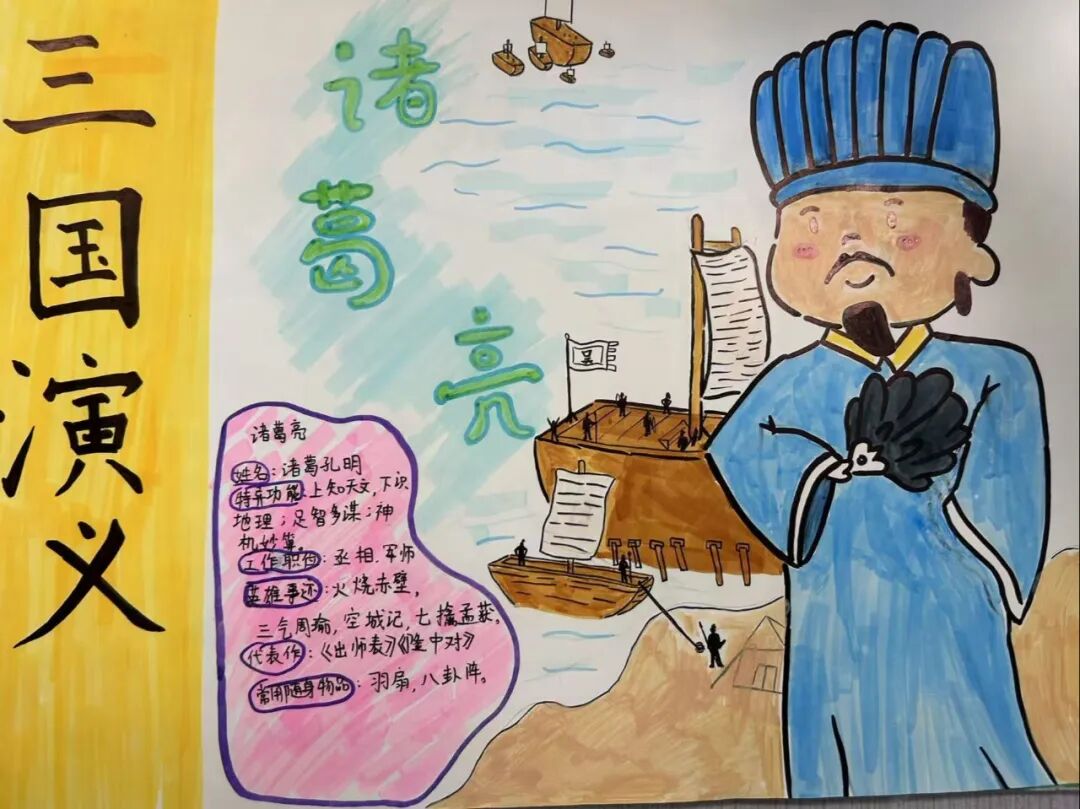 三国演义
诸葛亮
诸葛亮
姓名:诸葛孔明
特异功能:上知天文,下识
地理;足智多谋;神
机妙算。
工作职位:丞相.军师
英雄事迹:火烧赤壁,
三气周瑜,空城记,七擒孟获。
代表作:《出师表》《隆中对》
常用随身物品:羽扇,八卦阵。